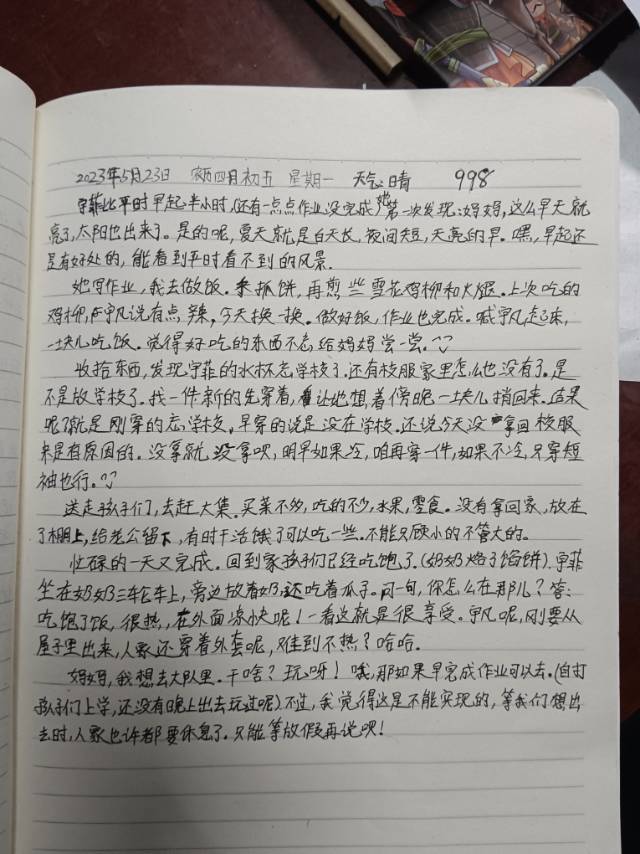 2023年5月23日 农历四月初五 星期一 天气:晴 998
宇菲比平时早起半小时,(还有一点点作业没完成)她第一次发现:妈妈,这么早天就
亮了,太阳也出来了。是的呢,夏天就是白天长,夜间短,天亮的早。嘿,早起还
是有好处的,能看到平时看不到的风景。
她写作业,我去做饭。手抓饼,再煎些雪花鸡柳和火腿。上次吃的
鸡柳,宇凡说有点辣,今天换一换。做好饭,作业也完成。喊宇凡起床,
一块儿吃饭。觉得好吃的东西不忘给妈妈尝一尝。
收拾东西,发现宇菲的水杯忘学校了。还有校服家里怎么也没有了。是
不是放学校了。找一件新的先穿着,让她想着傍晚一块儿捎回来。结果
呢?就是刚穿的忘学校,早穿的说是没在学校。还说今天没拿回校服
来是有原因的。没拿就没拿呗,明早如果冷,咱再穿一件,如果不冷,只穿短
袖也行。
送走孩子们,去赶大集。买菜不多,吃的不少,水果,零食。没有拿回家,放在
了棚上,给老公留下,有时干活饿了可以吃一些。不能只顾小的不管大的。
忙碌的一天又完成。回到家孩子们已经吃饱了(奶奶烙了馅饼)。宇菲
坐在奶奶三轮车上,旁边放着奶,还吃着瓜子。问一句,你怎么在那儿?答:
吃饱了饭,很热,在外面凉快呢!一看这就是很享受。宇凡呢,刚要从
屋子里出来,人家还穿着外套呢,难到不热?哈哈。
妈妈,我想去大队里。干啥?玩呀!哦,那如果早完成作业可以去。(自打
孩子们上学,还没有晚上出去玩过呢)不过,我觉得这是不能实现的,等我们想出
去时,人家也许都要休息了。只能等放假再说呗!